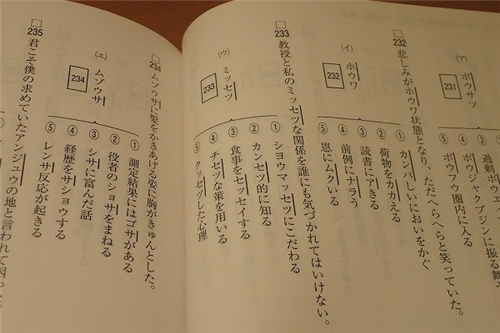 (ア) ボウサツ
231
過剰
ボウジャクブジンに振る舞
④ ボウフウ圏内に入る
⑤ カンバしいにおいをかぐ
232 悲しみがホウワ状態となり、ただへらへらと笑っていた。
(イ) ホウワ
232
① カンバしいにおいをかぐ
② 荷物をカカえる
③ 読書にアきる
④ 前例にナラう
⑤ 恩にムクいる
233 教授と私のミッセツな関係を誰にも気づかれてはいけない。
(ウ) ミッセツ
233
① ショウマッセツにこだわる
② カンセツ的に知る
③ 食事をセッセイする
④ チセツな策を用いる
⑤ クッセツした心理
234 ムゾウサに髪をかきあげる姿に胸がきゅんとした。
(エ) ムゾウサ
234
① 測定結果にはゴサがある
② 役者のショサをまねる
③ シサに富んだ話
④ 経歴をサショウする
⑤ レンサ反応が起きる
235 君こそ僕の求めていたアンジュウの地と言われて困った